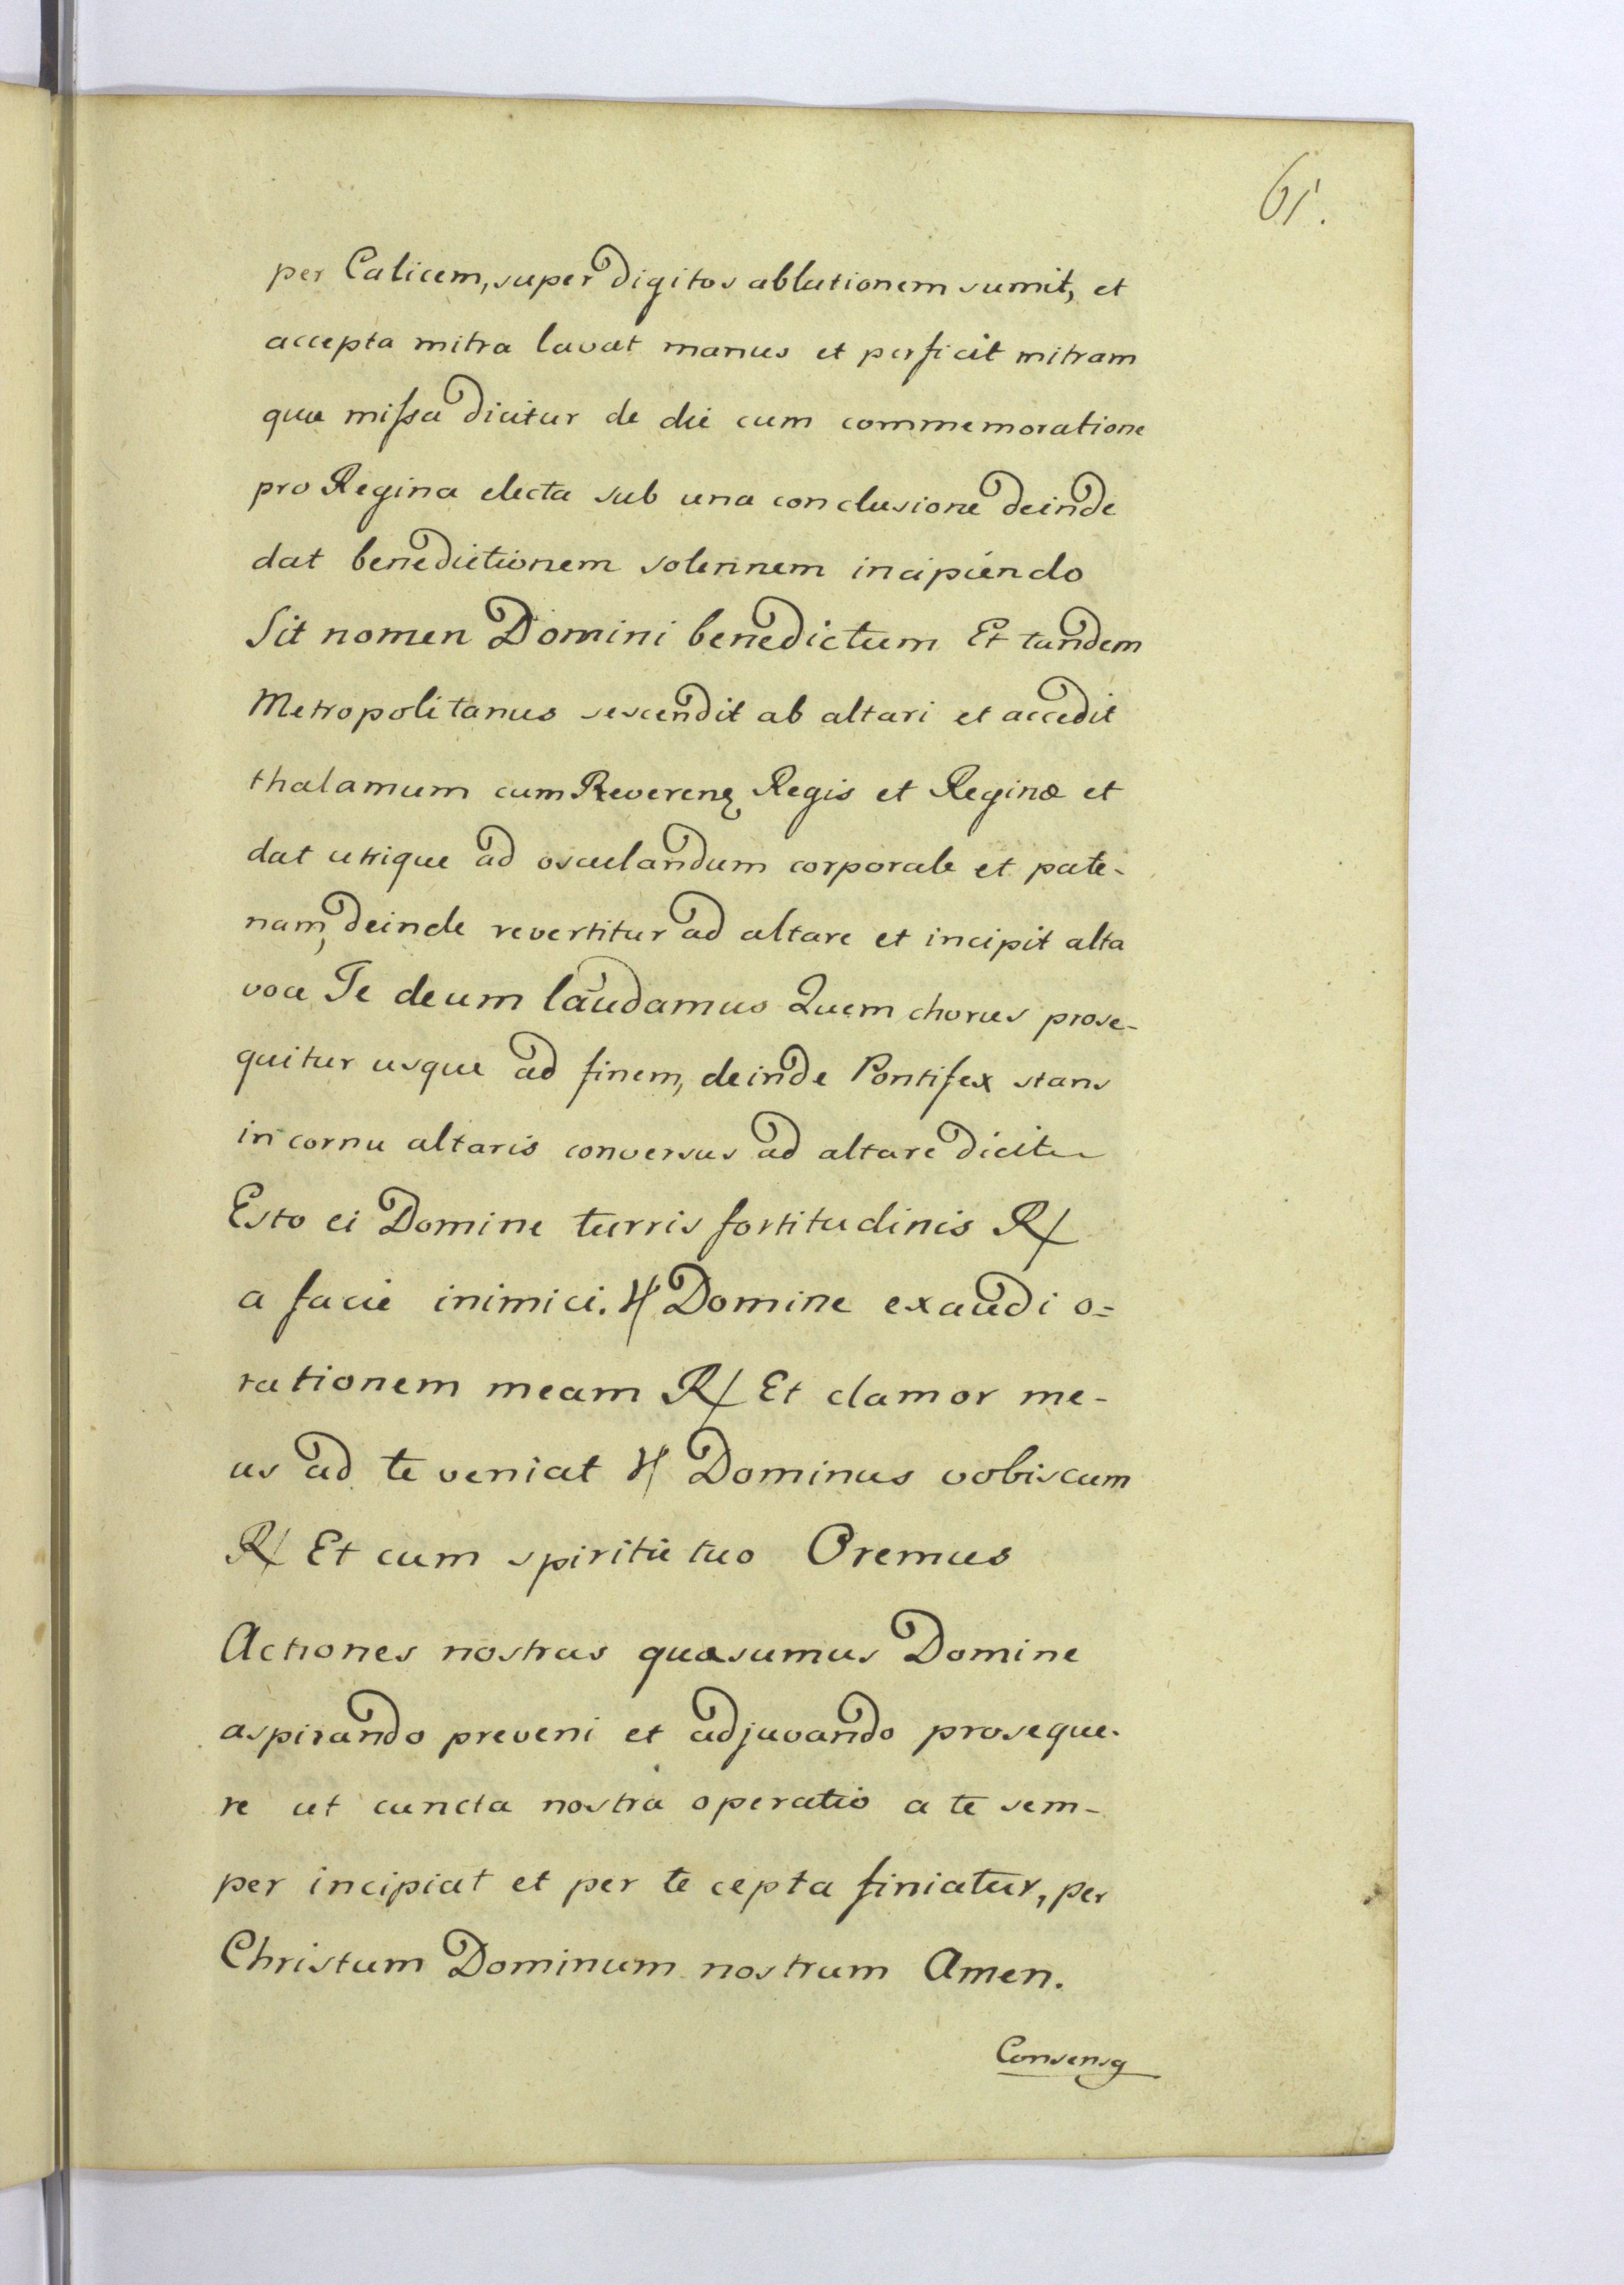 61.
per Calicem, super digitos ablutionem sumit, et
accepta mitra lavat manus et perficit mitram
quæ missa dicitur de die cum commemoratione
pro Regina electa sub una conclusione deinde
dat benedictionem solennem incipiendo
Sit nomen Domini benedictum Et tandem
Metropolitanus sescendit ab altari et accedit
thalamum cum Reverenꝫ Regis et Reginæ et
dat utrique ad osculandum corporale et pate-
nam, deinde revertitur ad altare et incipit alta
voce Te deum laudamus Quem chorus prose-
quitur usque ad finem, deinde Pontifex stans
in cornu altaris conversus ad altare dicit
Esto ei Domine turris fortitudinis ℟
a facie inimici. ℣ Domine exaudi o=
rationem meam ℟ Et clamor me-
us ad te veniat ℣ Dominus vobiscum
℟ Et cum spiritu tuo Oremus
Actiones nostras quæsumus Domine
aspirando preveni et adjuvando proseque-
re ut cuncta nostra operatio a te sem-
per incipiat et per te cepta finiatur, per
Christum Dominum nostrum Amen.
Consensꝯ